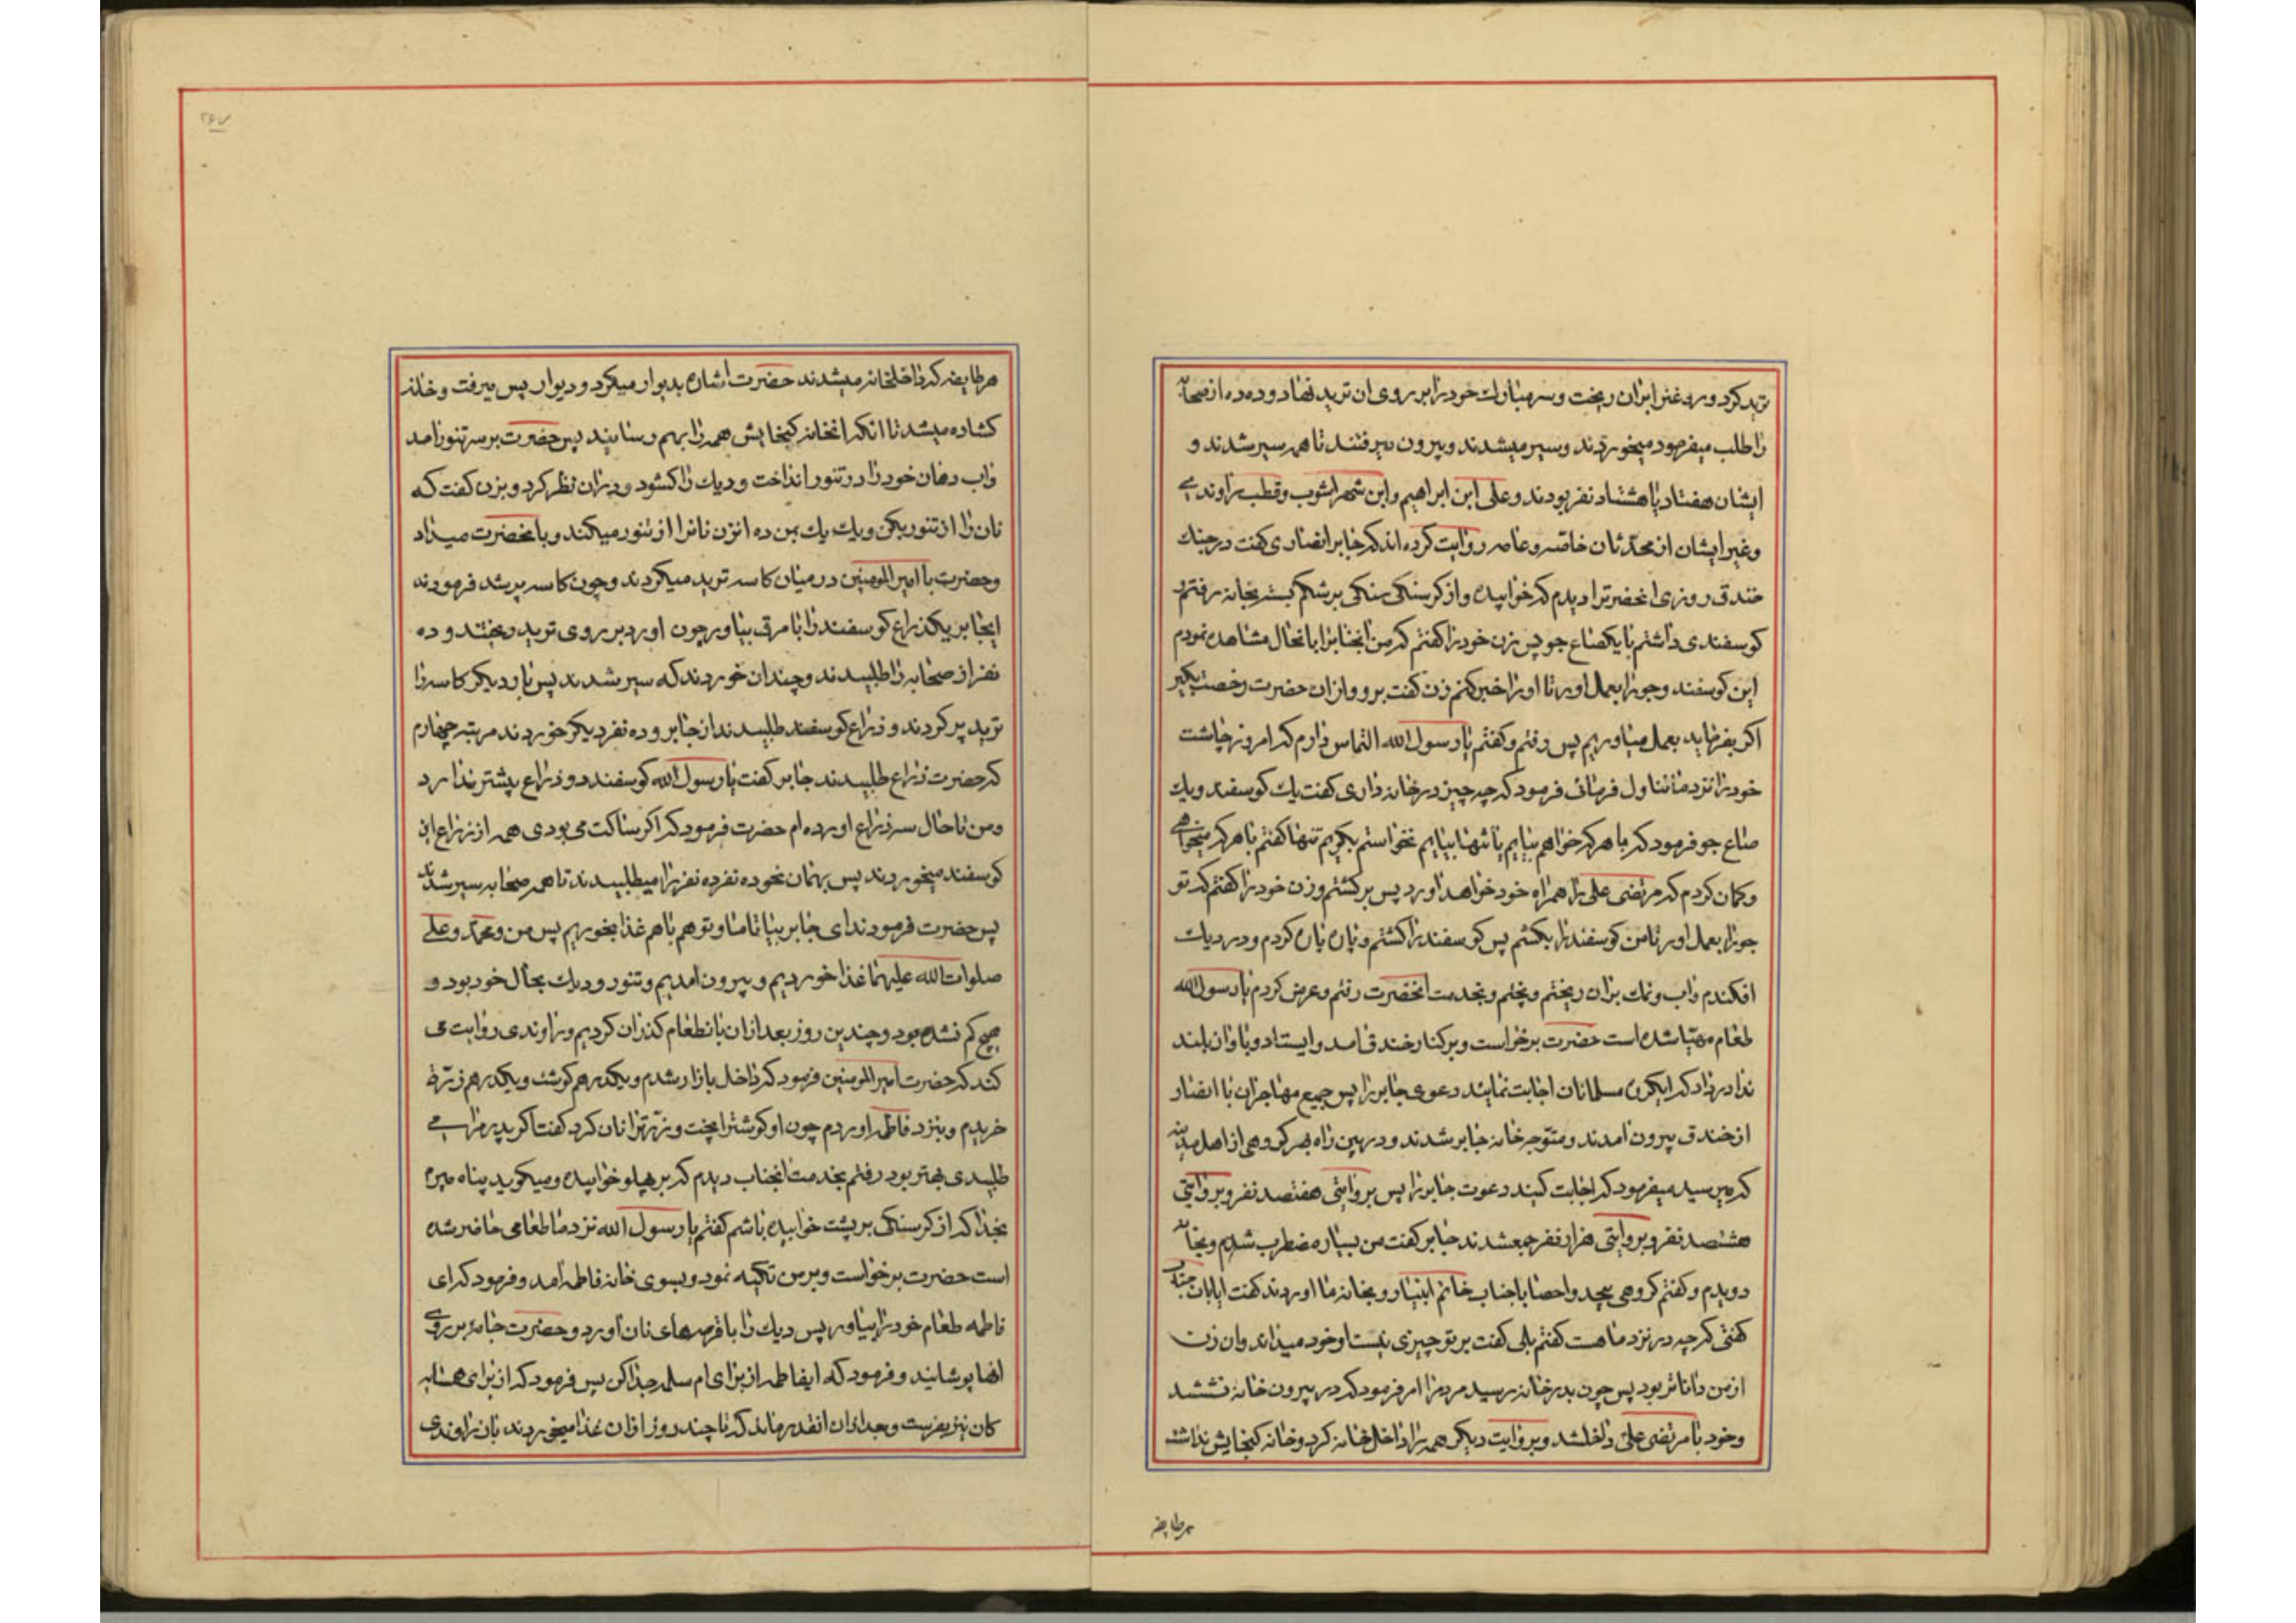 ترید کرد و روغن بر ان ریخت و سر مبارك خود را بر روی ان ترید نهاد و ده ده از صحابه
را طلب میفرمود میخوردند و سیر میشدند و بیرون میرفتند تا همه سیر شدند و
ایشان هفتاد یا هشتاد نفر بودند و علی ابن ابراهیم و ابن شهر اشوب و قطب راوندی
و غیر ایشان از محدثان خاصه و عامه روایت کرده اند که جابر انصاری گفت در جنك
خندق روزی انحضرترا دیدم که خوابیده و از کرسنکی سنکی بر شکم بسته بخانه رفتم
کوسفندی داشتم با یکصاع جو پس زن خود را کفتم که من انجنابرا بانحال مشاهده نمودم
این کوسفند و جو را بعمل اور تا او را خبر کنم زن کفت برو و از ان حضرت رخصت بکیر
اکر بفرماید بعمل میاوریم پس رفتم و کفتم یا رسول الله التماس دارم که امروز چاشت
خود را نزد ما تناول فرمائی فرمود که چه چیز در خانه داری کفت یك کوسفند و یك
صاع جو فرمود که با هر که خواهم بیایم یا تنها بیایم نخواستم بکویم تنها کفتم با هر که میخواهی
و کمان کردم که مرتضی علی را همراه خود خواهد اورد پس برکشتم و زن خود را کفتم که تو
جو را بعمل اور تا من کوسفند را بکشم پس کوسفند را کشتم و پاره پاره کردم و در دیك
افکندم و اب و نمك بر ان ریختم و پختم و بخدمت انحضرت رفتم و عرض کردم یا رسول الله
طعام مهیا شده است حضرت برخواست و بر کنار خندق امد و ایستاد و باواز بلند
ندا در داد که ایکروه مسلمانان اجابت نمایند دعوی جابر را پس جمیع مهاجران با انصار
از خندق بیرون امدند و متوجه خانه جابر شدند و در بین راه بهر کروهی از اهل مدینه
که میرسید میفرمود که اجابت کنید دعوت جابر را پس بروایتی هفتصد نفر و بروایتی
هشتصد نفر و بروایتی هزار نفر جمع شدند جابر کفت من بسیار مضطرب شدم و بخانه
دویدم و کفتم کروهی بیحد و احصا با جناب خاتم انبیا رو بخانه ما اوردند کفت ایا بان جناب
کفتی که چه در نزد ما هست کفتم بلی کفت بر تو چیزی نیست او خود میداند و ان زن
از من داناتر بود پس چون بدر خانه رسید مردم را امر فرمود که در بیرون خانه نشستند
و خود با مرتضی علی داخلشد و بروایت دیکر همه را داخل خانه کرد و خانه کنجایش نداشت
هر طایفه
۲۶۷
هر طایفه که داخلخانه میشدند حضرت اشاره بدیوار میکرد و دیوار پس میرفت و خانه
کشاده میشد تا انکه انخانه کنجایش همه را بهم رسانید پس حضرت بر سر تنور امد
و اب دهان خود را در تنور انداخت و دیك را کشود و در ان نظر کرد و بزن کفت که
نان را از تنور بکن و یك یك بمن ده انزن نانرا از تنور میکند و بانحضرت میداد
و حضرت با امیر المومنین در میان کاسه ترید میکردند و چون کاسه پر شد فرمودند
ایجابر یکذراع کوسفند را با مرق بیاور چون اورد بر روی ترید ریختند و ده
نفر از صحابه را طلبیدند و چندان خوردند که سیر شدند پس بار دیکر کاسه را
ترید پر کردند و ذراع کوسفند طلبیدند از جابر و ده نفر دیکر خوردند مرتبه چهارم
که حضرت ذراع طلبیدند جابر کفت یا رسول الله کوسفند دو ذراع بیشتر ندارد
و من تا حال سه ذراع اورده ام حضرت فرمود که اکر ساکت می بودی همه از ذراع این
کوسفند میخوردند پس بهمان نحو ده نفر ده نفر را میطلبیدند تا همه صحابه سیر شدند
پس حضرت فرمودند ای جابر بیا تا ما و تو هم باهم غذا بخوریم پس من و محمد و علی
صلوات الله علیهما غذا خوردیم و بیرون امدیم و تنور و دیك بحال خود بود و
هیچ کم نشده بود و چندین روز بعد از ان بانطعام کذران کردیم و راوندی روایت می
کند که حضرت امیر المومنین فرمود که داخل بازار شدم و یکدرهم کوشت و یکدرهم ذرة
خریدم و بنزد فاطمه اوردم چون او کوشترا پخت و ذرترا نان کرد کفت اکر پدرم را می
طلبیدی بهتر بود رفتم بخدمت انجناب دیدم که بر پهلو خوابیده و میکوید پناه میبرم
بخدا که از کرسنکی بر پشت خوابیده باشم کفتم یا رسول الله نزد ما طعامی حاضر شده
است حضرت برخواست و بر من تکیه نمود و بسوی خانه فاطمه امد و فرمود که ای
فاطمه طعام خود را بیاور پس دیك را با قرصهای نان اورد و حضرت جامهٔ بر روی
انها پوشانید و فرمود که ایفاطمه از برای ام سلمه جدا کن پس فرمود که از برای همسایه
کان نیز بفرست و بعد از ان انقدر ماند که تا چند روز از ان غذا میخوردند بان راوندی